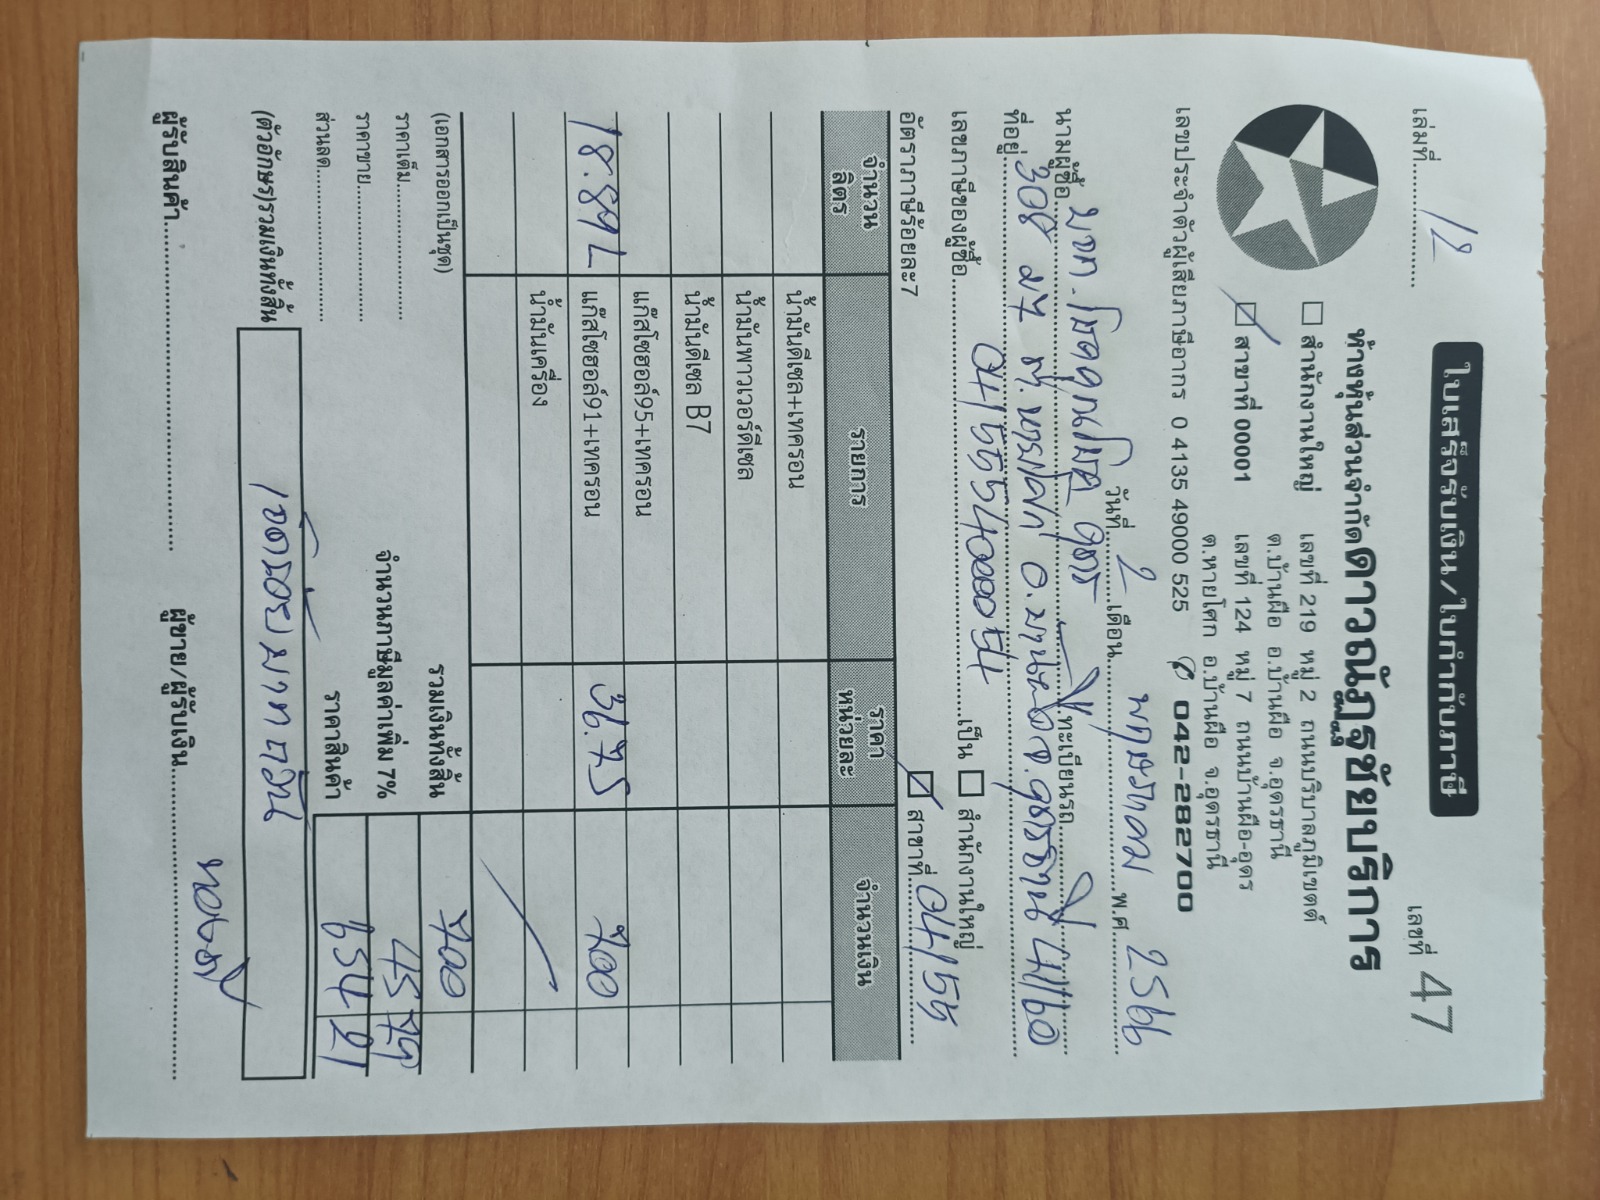 ใบเสร็จรับเงิน/ใบกำกับภาษี
เล่มที่ 12 เลขที่ 47
ห้างหุ้นส่วนจำกัดดาวณัฏฐชัยบริการ
สำนักงานใหญ่ เลขที่ 219 หมู่ 2 ถนนบริบาลภูมิเขตต์
ต.บ้านผือ อ.บ้านผือ จ.อุดรธานี
สาขาที่ 00001 เลขที่ 124 หมู่ 7 ถนนบ้านผือ-อุดร
ต.หายโศก อ.บ้านผือ จ.อุดรธานี
เลขประจำตัวผู้เสียภาษีอากร 0 4135 49000 525 042-282700
วันที่ 2 เดือน พฤษภาคม พ.ศ 2566
นามผู้ซื้อ บจก. ทะเบียนรถ
ที่อยู่ 308 ม7 ต. อ. จ.อุดรธานี 41160
เลขภาษีของผู้ซื้อ เป็น สำนักงานใหญ่
อัตราภาษีร้อยละ7 สาขาที่
จำนวนลิตร รายการ ราคาหน่วยละ จำนวนเงิน
น้ำมันดีเซล+เทครอน
น้ำมันพาวเวอร์ดีเซล
น้ำมันดีเซล B7
แก๊สโซฮอล์95+เทครอน
แก๊สโซฮอล์91+เทครอน 36.75 700
น้ำมันเครื่อง
(เอกสารออกเป็นชุด) รวมเงินทั้งสิ้น 700
ราคาเต็ม จำนวนภาษีมูลค่าเพิ่ม 7% 45 79
ราคาขาย
ส่วนลด ราคาสินค้า 654 21
(ตัวอักษร)รวมเงินทั้งสิ้น เจ็ดร้อยบาทถ้วน
ผู้รับสินค้า ผู้ขาย/ผู้รับเงิน